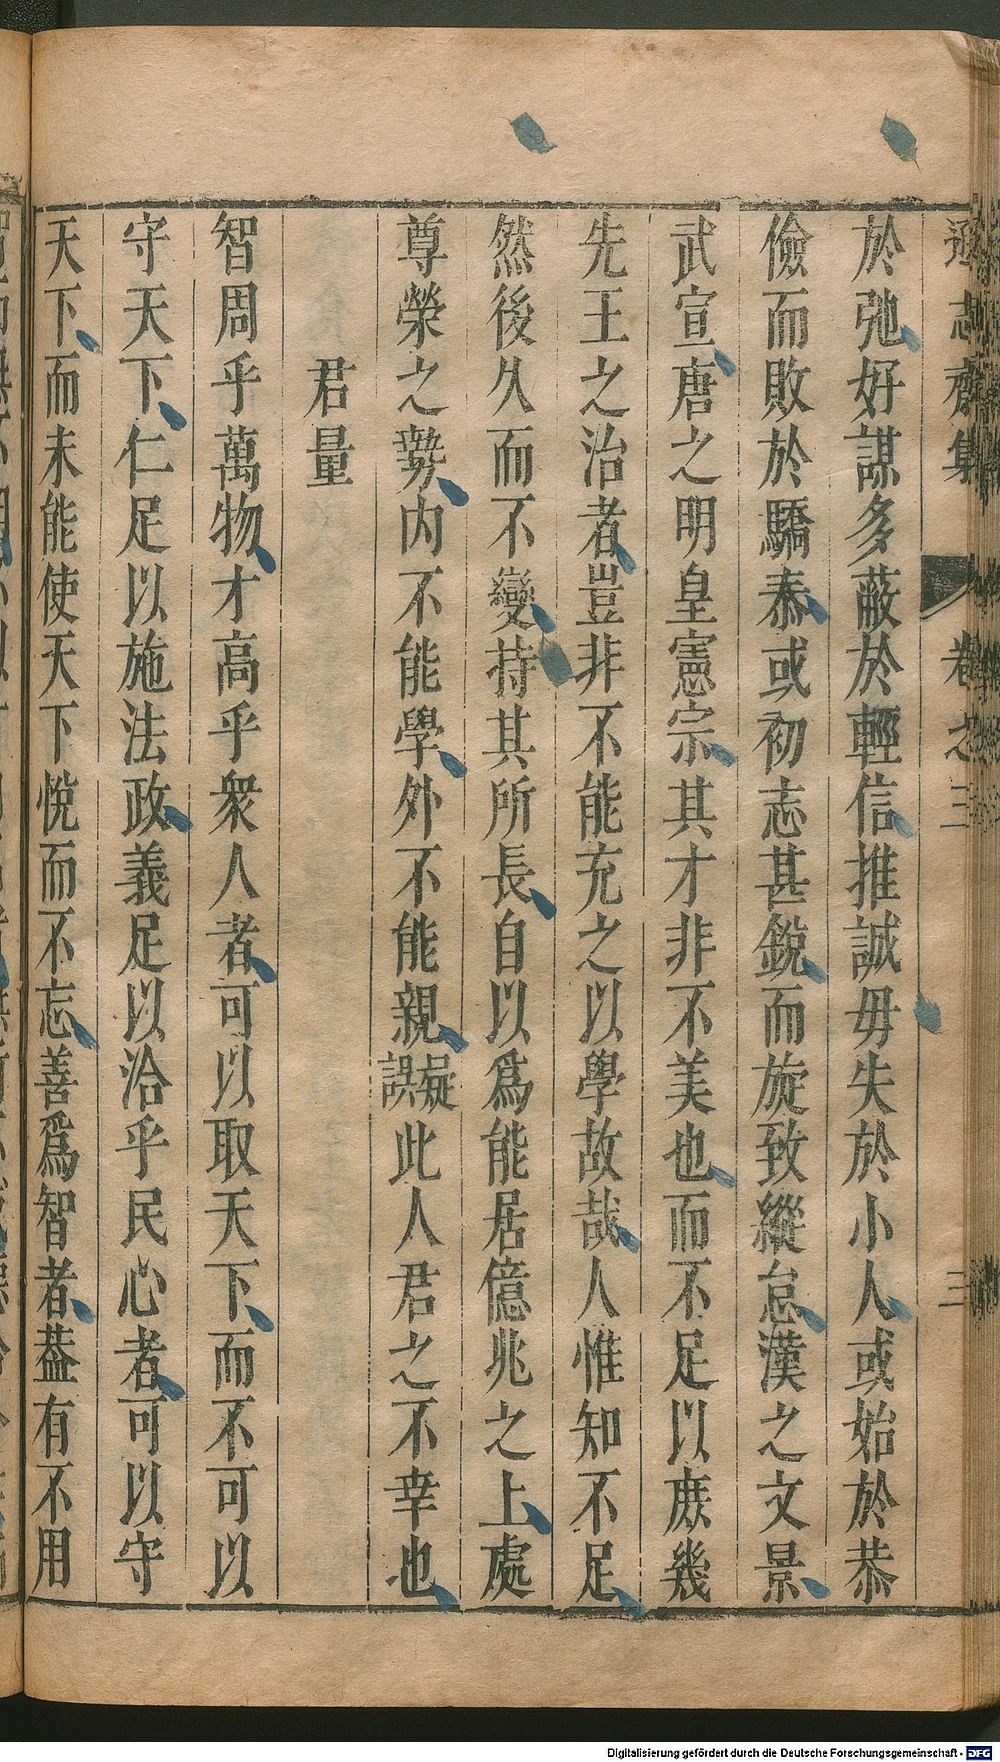 遜志齋集 卷之三 二
於弛好謀多蔽於輕信推誠毋失於小人或始於恭
儉而敗於驕泰或初志甚銳而旋致縱怠漢之文景
武宣唐之明皇憲宗其才非不美也而不足以庶幾
先王之治者豈非不能充之以學故哉人惟知不足
然後久而不變恃其所長自以爲能居億兆之上處
尊榮之勢内不能學外不能親疑誤此人君之不幸也
君量
智周乎萬物才高乎衆人者可以取天下而不可以
守天下仁足以施法政義足以洽乎民心者可以守
天下而未能使天下悅而不忘善爲智者葢有不用
Digitalisierung gefördert durch die Deutsche Forschungsgemeinschaft - DFG